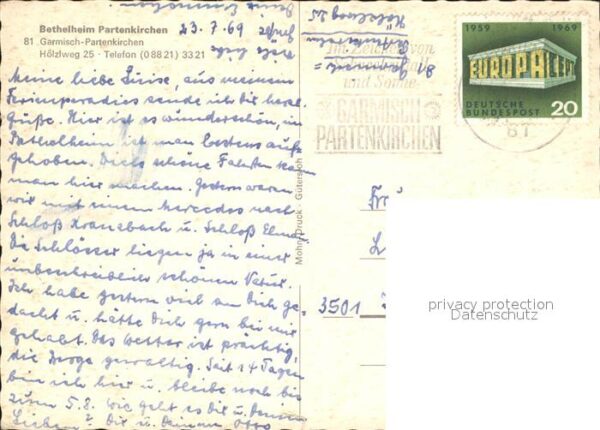 Bethelheim Partenkirchen
81 Garmisch-Partenkirchen
Hölzlweg 25 - Telefon (0 88 21) 33 21
23.7.69
Meine liebe Luise, aus meinem
Ferienparadies sende ich dir herzl.
Grüße. Hier ist es wunderschön, im
Bethelheim ist man bestens auf-
gehoben. Viele schöne Fahrten kann
man hier machen. Gestern waren
wir mit einem Mercedes nach
Schloß Kranzbach u. Schloß Elmau.
Die Schlösser liegen ja in einer
unbeschreiblich schönen Natur.
Ich habe gestern viel an Dich ge-
dacht u. hätte Dich gern bei mir
gehabt. Das Wetter ist prächtig,
die Berge gewaltig. Seit 14 Tagen
bin ich hier u. bleibe noch bis
zum 5.8. Wie geht es Dir u. Deinen
Lieben? Dir u. Deinem Otto
Mohn-Druck · Gütersloh
Im Zeichen von
und Sonne
GARMISCH
PARTENKIRCHEN
1959 1969
EUROPA CEPT
DEUTSCHE
BUNDESPOST 20
3501
privacy protection
Datenschutz